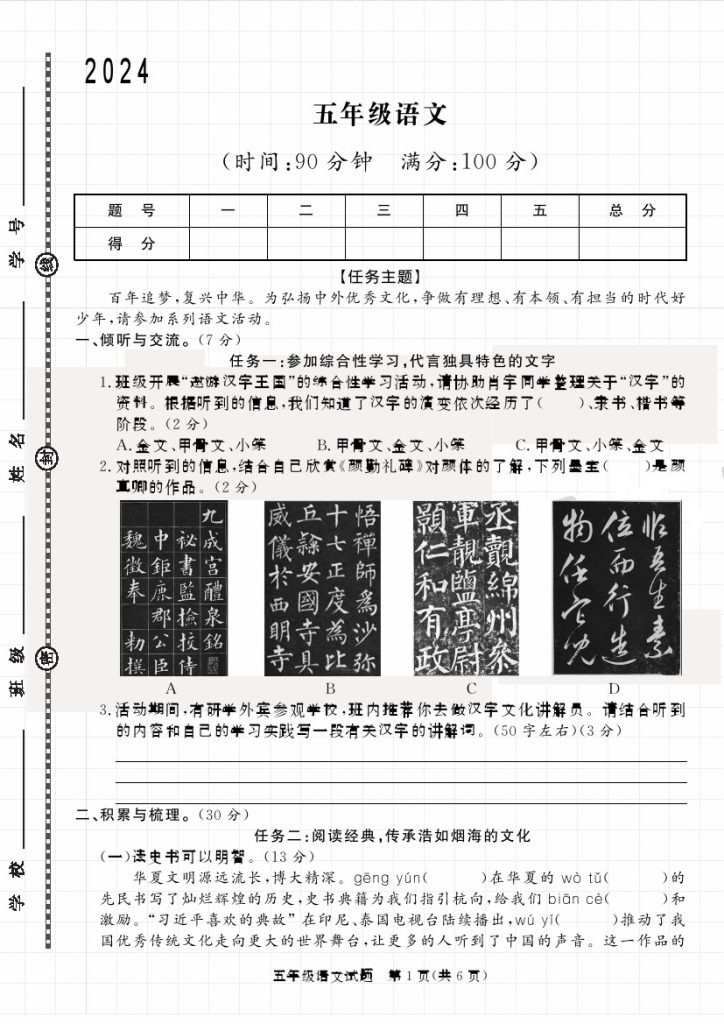 2024
五年级语文
(时间:90分钟 满分:100分)
题 号 一 二 三 四 五 总 分
得 分
【任务主题】
百年追梦,复兴中华。为弘扬中外优秀文化,争做有理想、有本领、有担当的时代好
少年,请参加系列语文活动。
一、倾听与交流。(7分)
任务一:参加综合性学习,代言独具特色的文字
1.班级开展“遨游汉字王国”的综合性学习活动,请协助肖宇同学整理关于“汉字”的
资料。根据听到的信息,我们知道了汉字的演变依次经历了( )、隶书、楷书等
阶段。(2分)
A.金文、甲骨文、小篆 B.甲骨文、金文、小篆 C.甲骨文、小篆、金文
2.对照听到的信息,结合自己欣赏《颜勤礼碑》对颜体的了解,下列墨宝( )是颜
真卿的作品。(2分)
九成宫醴泉铭
秘書監撿挍侍
中鉅鹿郡公臣
魏徵奉勅撰
悟禪師爲沙弥
十七正度為比
丘隸安國寺具
威儀於西明寺
丞覿綿州叅
軍靚鹽亭尉
顥仁和有政
A B C D
3.活动期间,有研学外宾参观学校,班内推荐你去做汉字文化讲解员。请结合听到
的内容和自己的学习实践写一段有关汉字的讲解词。(50字左右)(3分)
二、积累与梳理。(30分)
任务二:阅读经典,传承浩如烟海的文化
(一)读史书可以明智。(13分)
华夏文明源远流长,博大精深。gēng yún( )在华夏的 wò tǔ( )的
先民书写了灿烂辉煌的历史,史书典籍为我们指引杭向,给我们 biān cè( )和
激励。“习近平喜欢的典故”在印尼、泰国电视台陆续播出,wú yí( )推动了我
国优秀传统文化走向更大的世界舞台,让更多的人听到了中国的声音。这一作品的
五年级语文试题 第1页(共6页)
学 号
姓 名
班 级
学 校
线
封
密